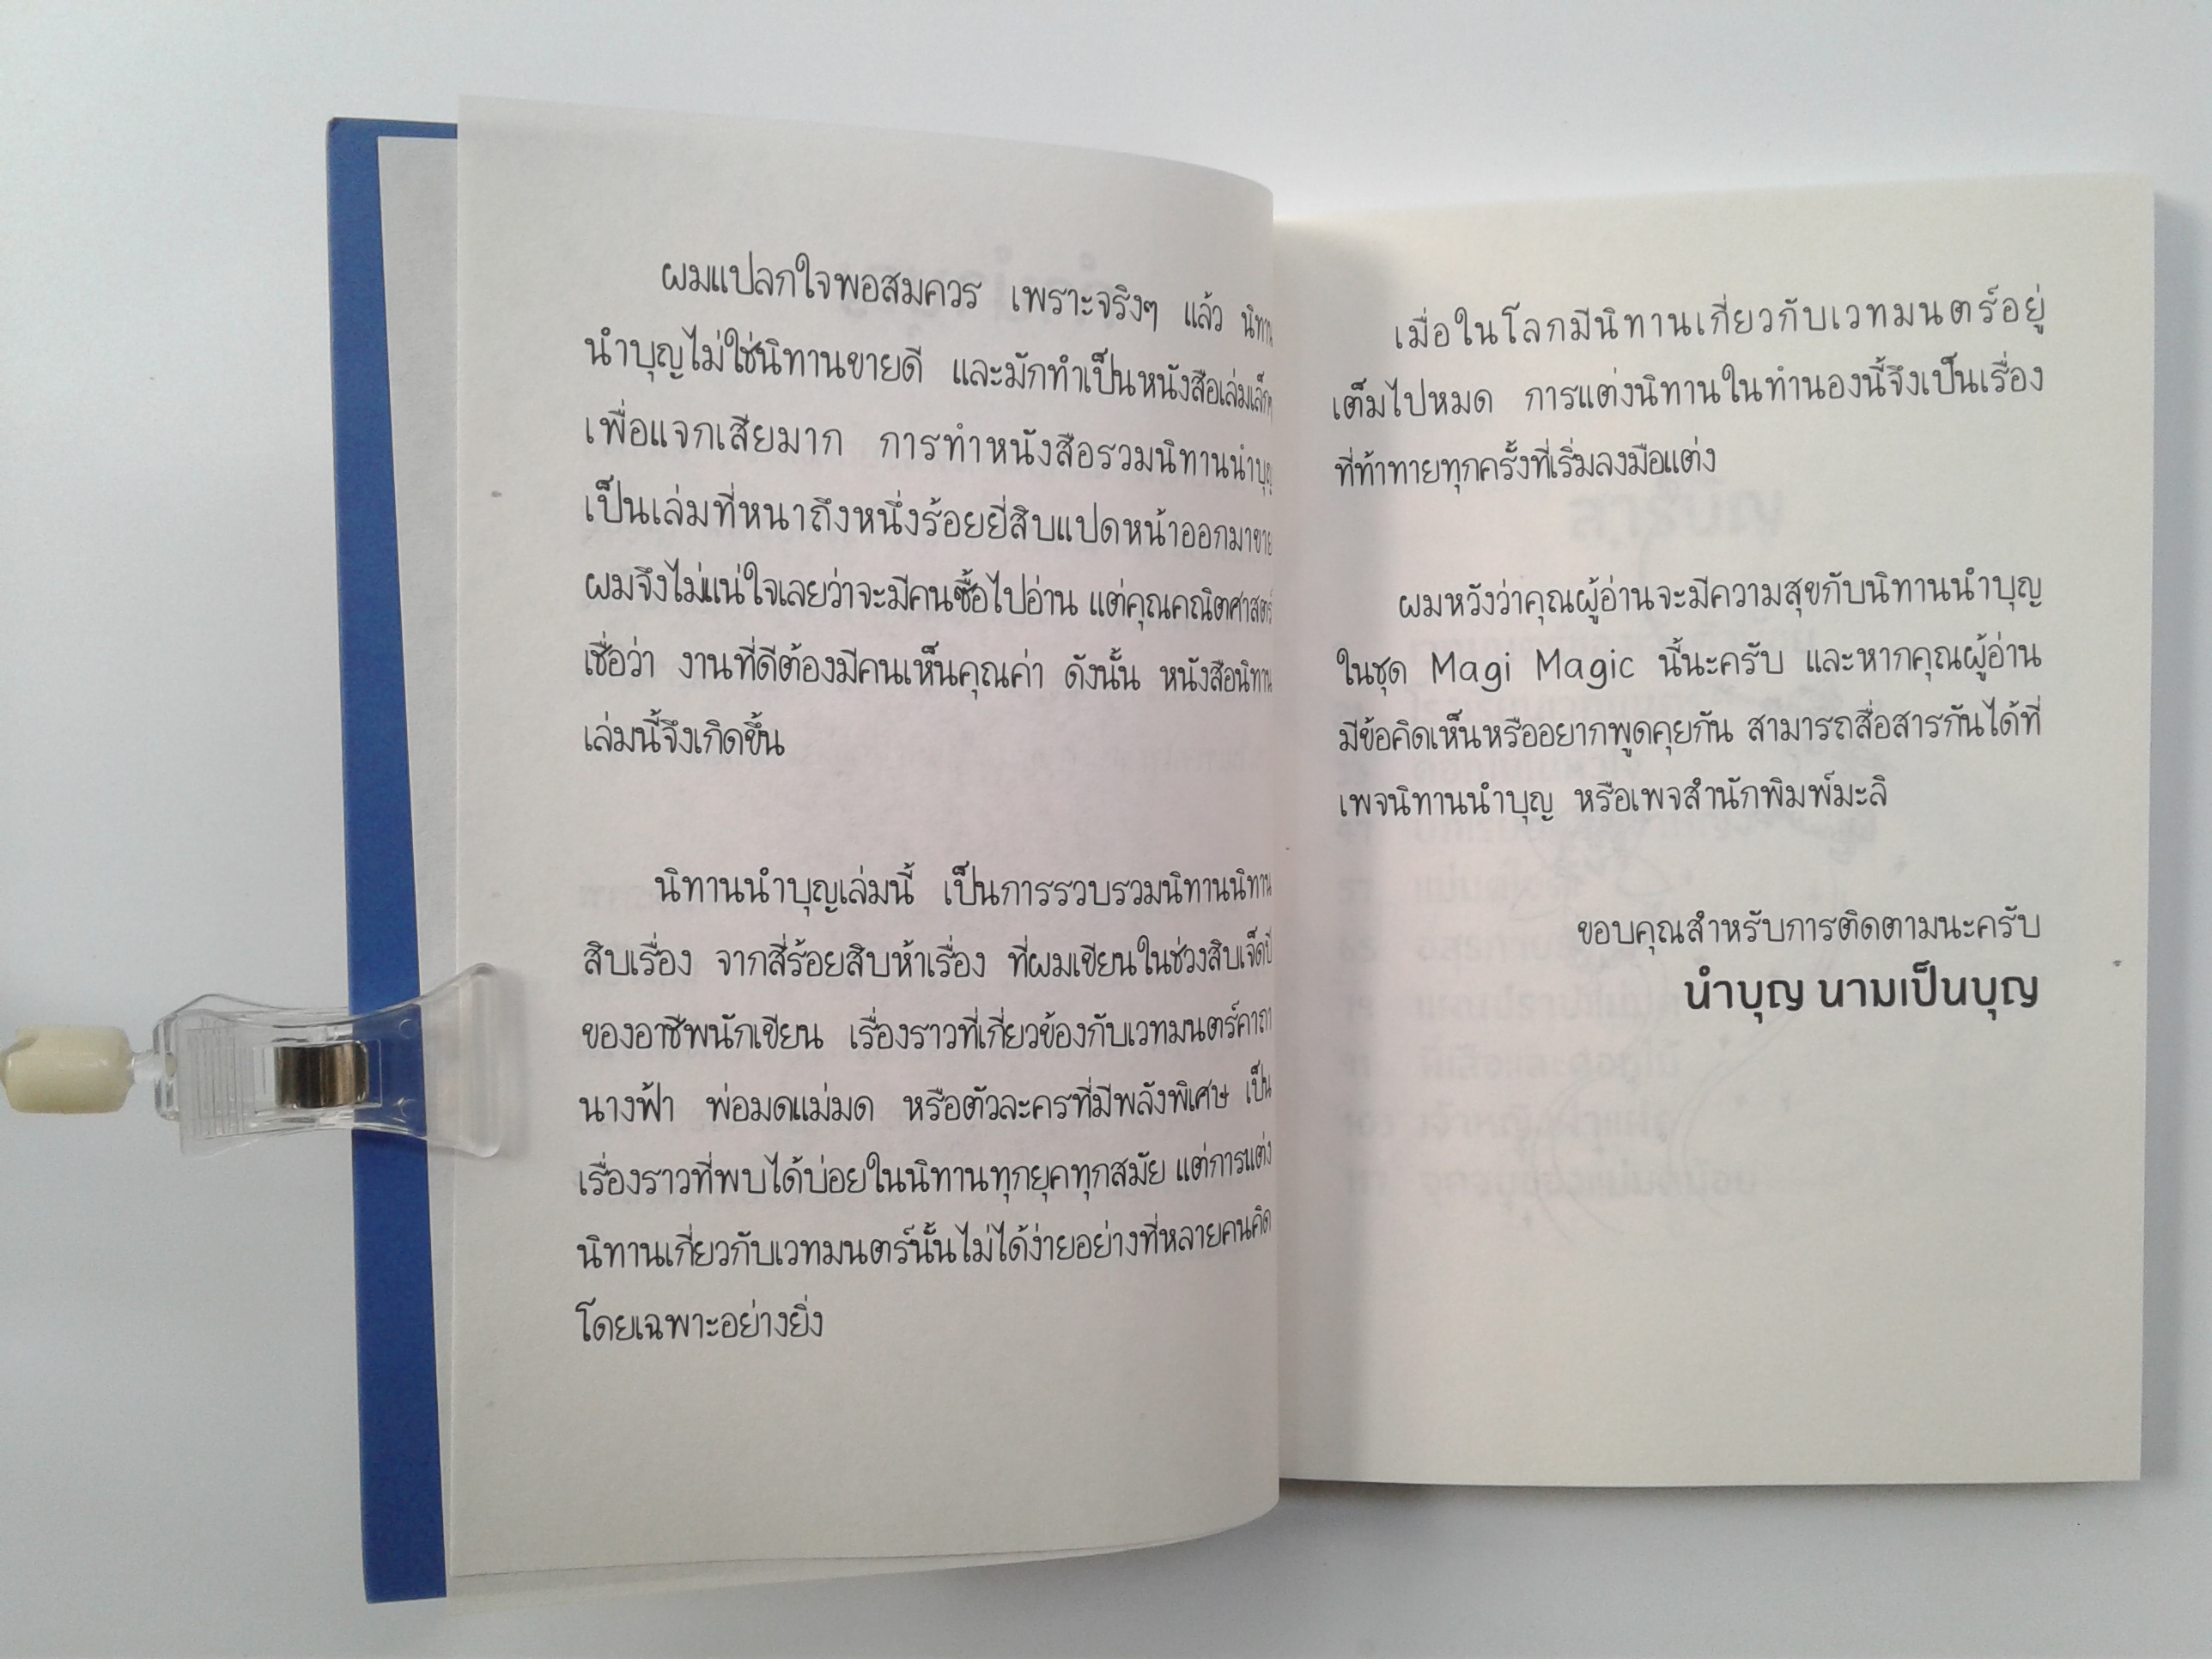 ผมแปลกใจพอสมควร เพราะจริงๆ แล้ว นิทาน
นำบุญไม่ใช่นิทานขายดี และมักทำเป็นหนังสือเล่มเล็กๆ
เพื่อแจกเสียมาก การทำหนังสือรวมนิทานนำบุญ
เป็นเล่มที่หนาถึงหนึ่งร้อยยี่สิบแปดหน้าออกมาขาย
ผมจึงไม่แน่ใจเลยว่าจะมีคนซื้อไปอ่าน แต่คุณคณิตศาสตร์
เชื่อว่า งานที่ดีต้องมีคนเห็นคุณค่า ดังนั้น หนังสือนิทาน
เล่มนี้จึงเกิดขึ้น
นิทานนำบุญเล่มนี้ เป็นการรวบรวมนิทานนิทาน
สิบเรื่อง จากสี่ร้อยสิบห้าเรื่อง ที่ผมเขียนในช่วงสิบเจ็ดปี
ของอาชีพนักเขียน เรื่องราวที่เกี่ยวข้องกับเวทมนตร์คาถา
นางฟ้า พ่อมดแม่มด หรือตัวละครที่มีพลังพิเศษ เป็น
เรื่องราวที่พบได้บ่อยในนิทานทุกยุคทุกสมัย แต่การแต่ง
นิทานเกี่ยวกับเวทมนตร์นั้นไม่ได้ง่ายอย่างที่หลายคนคิด
โดยเฉพาะอย่างยิ่ง
เมื่อในโลกมีนิทานเกี่ยวกับเวทมนตร์อยู่
เต็มไปหมด การแต่งนิทานในทำนองนี้จึงเป็นเรื่อง
ที่ท้าทายทุกครั้งที่เริ่มลงมือแต่ง
ผมหวังว่าคุณผู้อ่านจะมีความสุขกับนิทานนำบุญ
ในชุด Magi Magic นี้นะครับ และหากคุณผู้อ่าน
มีข้อคิดเห็นหรืออยากพูดคุยกัน สามารถสื่อสารกันได้ที่
เพจนิทานนำบุญ หรือเพจสำนักพิมพ์มะลิ
ขอบคุณสำหรับการติดตามนะครับ
นำบุญ นามเป็นบุญ